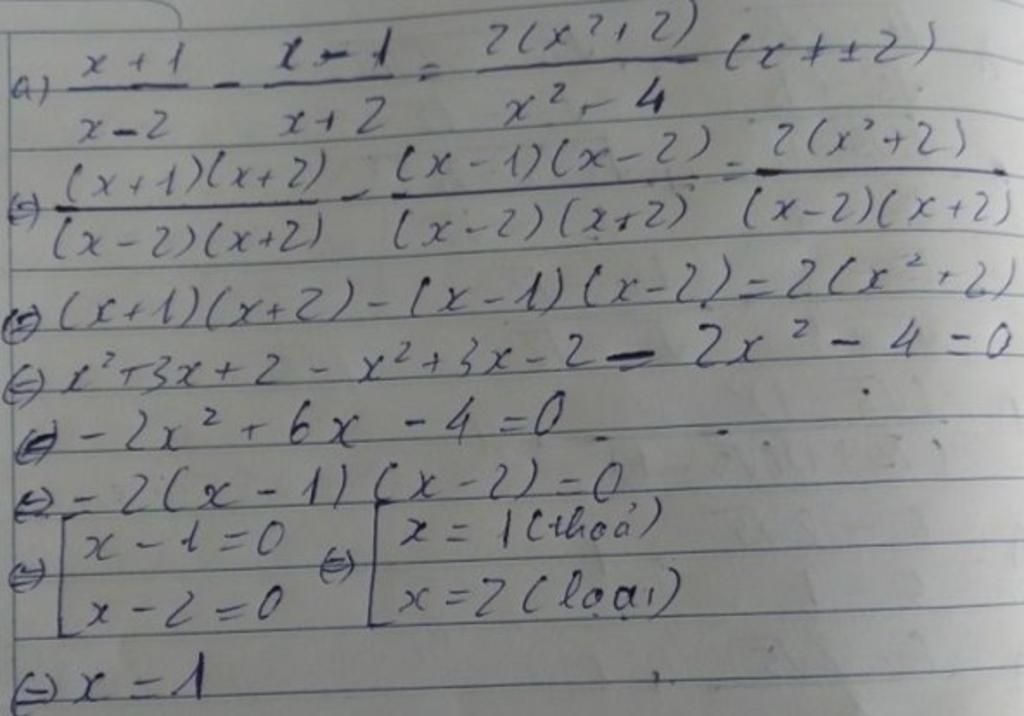 a) \frac{x+1}{x-2} - \frac{x-1}{x+2} = \frac{2(x²+2)}{x²-4} (x ≠ ±2)
⇔ \frac{(x+1)(x+2)}{(x-2)(x+2)} - \frac{(x-1)(x-2)}{(x-2)(x+2)} = \frac{2(x²+2)}{(x-2)(x+2)}
⇔ (x+1)(x+2) - (x-1)(x-2) = 2(x²+2)
⇔ x²+3x+2 - x²+3x-2 - 2x² - 4 = 0
⇔ -2x² + 6x - 4 = 0
⇔ -2(x-1)(x-2) = 0
⇔ [ x - 1 = 0 ⇔ [ x = 1 (thoả)
x - 2 = 0 x = 2 (loại)
⇔ x = 1